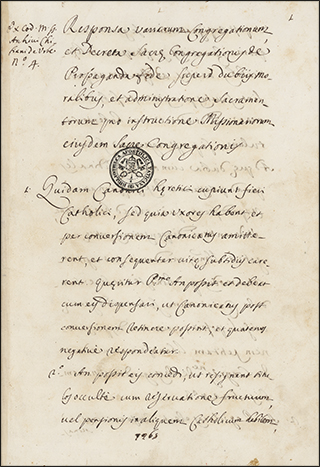 1
Ex Cod. M.S.
Archivi
No. 4.
Responsa variarum Congregationum
et Decreta Sacræ Congregationis de
Propaganda Fide circa dubia mo-
ralibus, et administratione Sacramen
torum pro instructione Missionariorum
eiusdem Sacræ Congregationis
1. Quidam Canonici hæretici cupiunt fieri
Catholici, sed quia uxores habent, et
per conversionem Canonicatus amitte-
rent, et consequenter vitæ subsidiis care-
rent quæritur An possit et debeat
cum eis dispensari, ut Canonicatus post
conversionem retinere possint, et quatenus
negative respondeatur.
2.o An possit eis concedi, ut resignent
occulte cum reservatione fructuum,
vel pensionis in aliquem Catholicum
7263